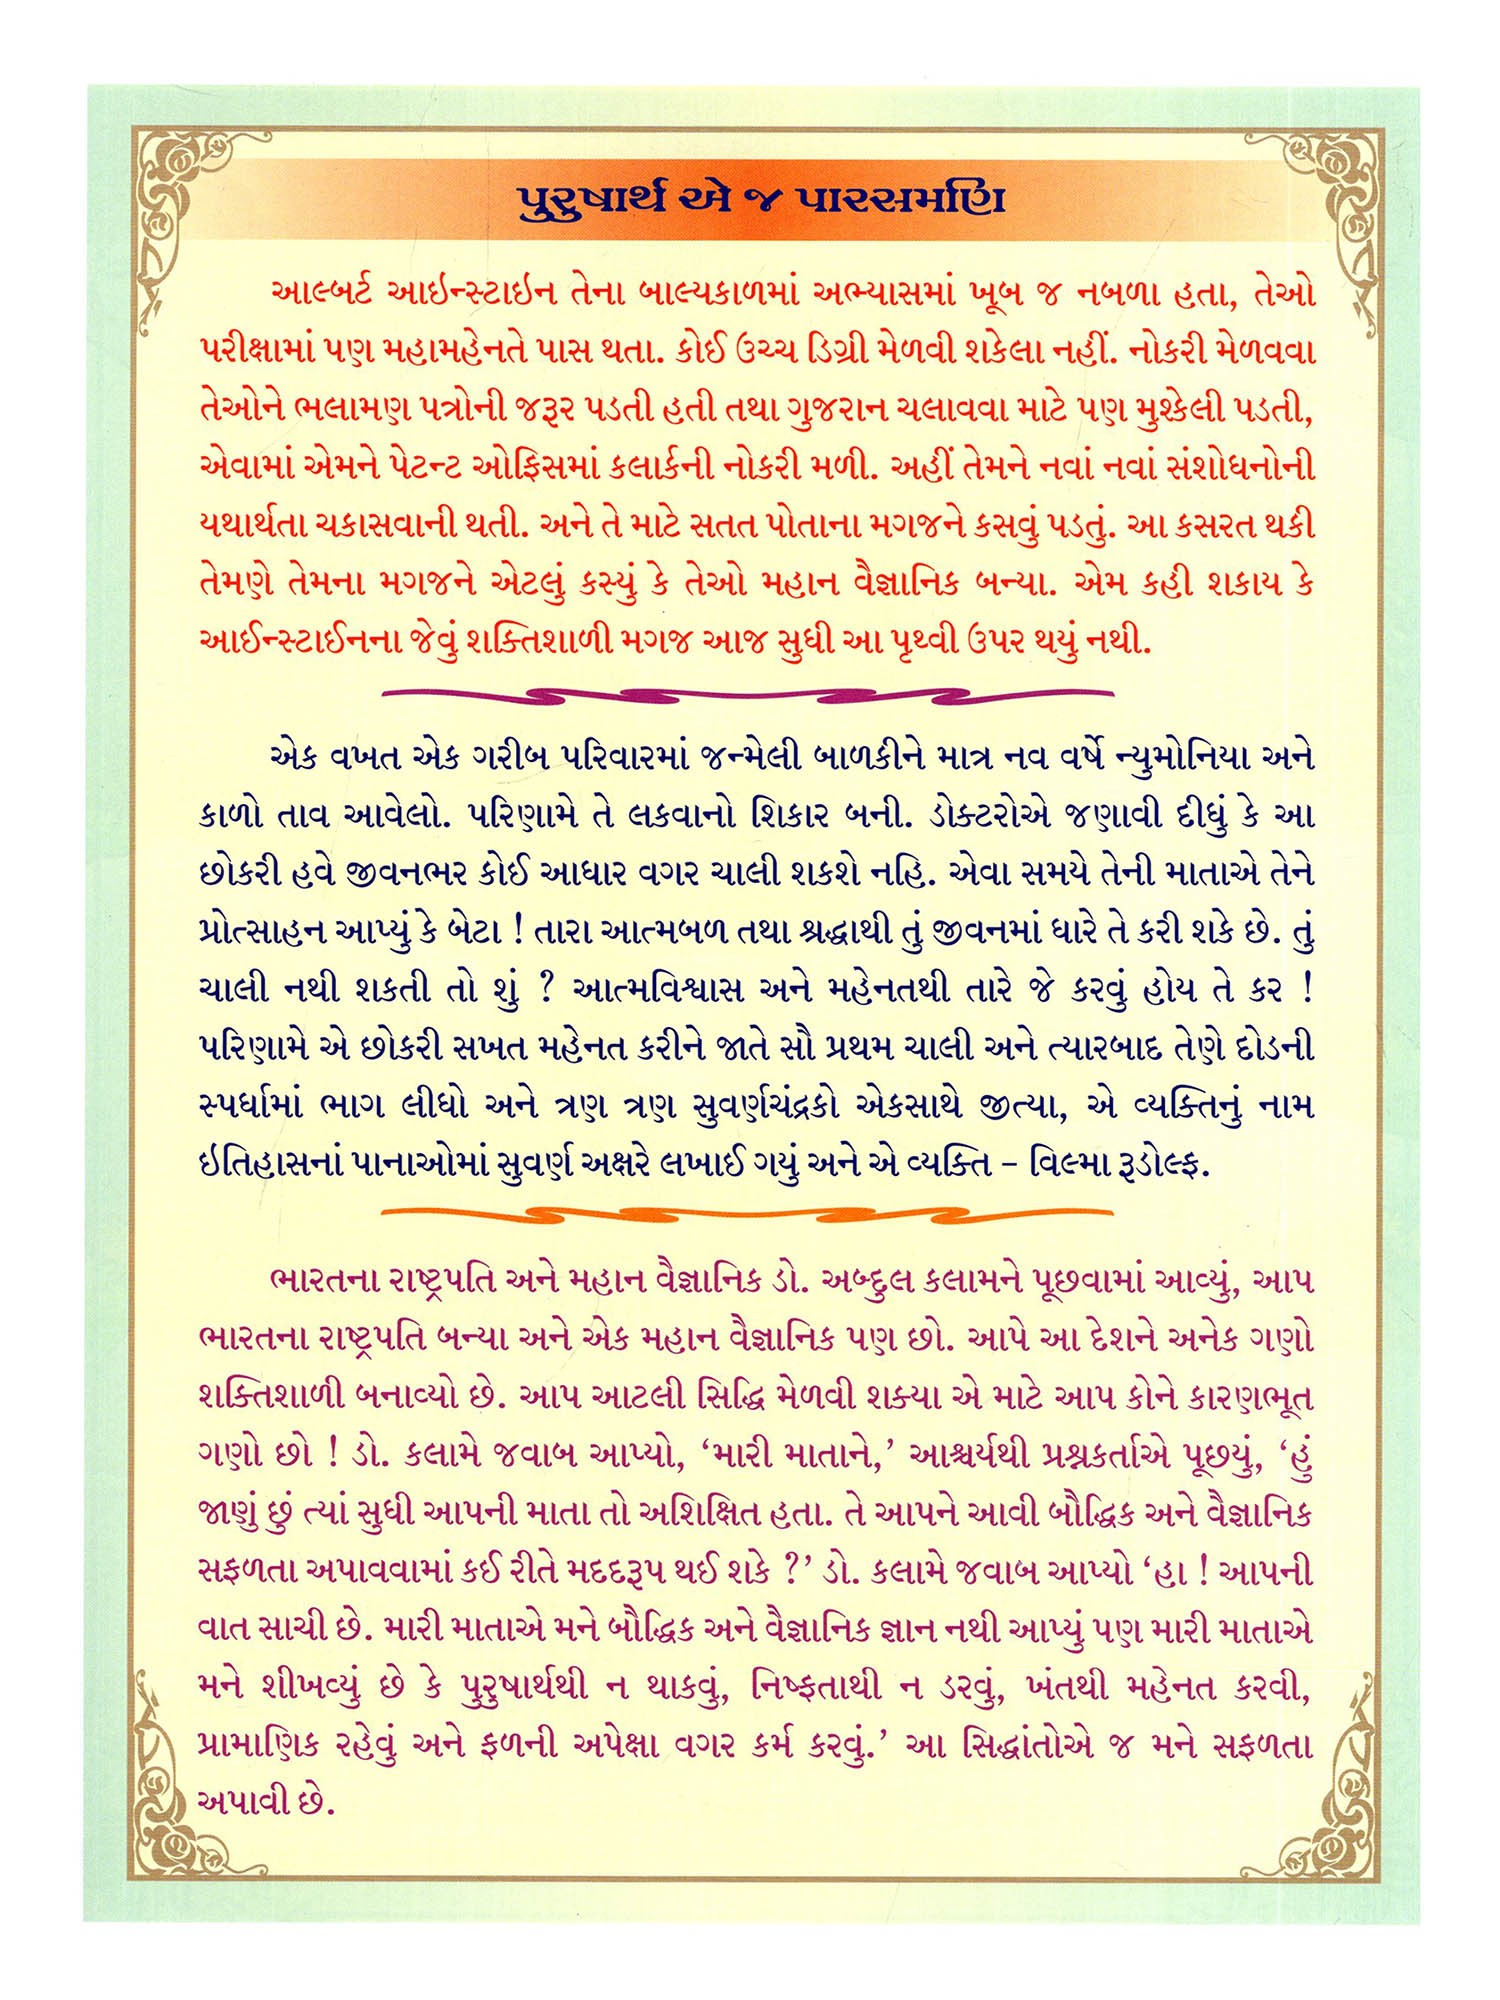 પુરુષાર્થ એ જ પારસમણિ
આલ્બર્ટ આઇન્સ્ટાઇન તેના બાલ્યકાળમાં અભ્યાસમાં ખૂબ જ નબળા હતા, તેઓ
પરીક્ષામાં પણ મહામહેનતે પાસ થતા. કોઈ ઉચ્ચ ડિગ્રી મેળવી શકેલા નહીં. નોકરી મેળવવા
તેઓને ભલામણ પત્રોની જરૂર પડતી હતી તથા ગુજરાન ચલાવવા માટે પણ મુશ્કેલી પડતી,
એવામાં એમને પેટન્ટ ઓફિસમાં કલાર્કની નોકરી મળી. અહીં તેમને નવાં નવાં સંશોધનોની
યથાર્થતા ચકાસવાની થતી. અને તે માટે સતત પોતાના મગજને કસવું પડતું. આ કસરત થકી
તેમણે તેમના મગજને એટલું કસ્યું કે તેઓ મહાન વૈજ્ઞાનિક બન્યા. એમ કહી શકાય કે
આઈન્સ્ટાઈનના જેવું શક્તિશાળી મગજ આજ સુધી આ પૃથ્વી ઉપર થયું નથી.
એક વખત એક ગરીબ પરિવારમાં જન્મેલી બાળકીને માત્ર નવ વર્ષે ન્યુમોનિયા અને
કાળો તાવ આવેલો. પરિણામે તે લકવાનો શિકાર બની. ડોક્ટરોએ જણાવી દીધું કે આ
છોકરી હવે જીવનભર કોઈ આધાર વગર ચાલી શકશે નહિ. એવા સમયે તેની માતાએ તેને
પ્રોત્સાહન આપ્યું કે બેટા ! તારા આત્મબળ તથા શ્રદ્ધાથી તું જીવનમાં ધારે તે કરી શકે છે. તું
ચાલી નથી શકતી તો શું ? આત્મવિશ્વાસ અને મહેનતથી તારે જે કરવું હોય તે કર !
પરિણામે એ છોકરી સખત મહેનત કરીને જાતે સૌ પ્રથમ ચાલી અને ત્યારબાદ તેણે દોડની
સ્પર્ધામાં ભાગ લીધો અને ત્રણ ત્રણ સુવર્ણચંદ્રકો એકસાથે જીત્યા, એ વ્યક્તિનું નામ
ઇતિહાસનાં પાનાઓમાં સુવર્ણ અક્ષરે લખાઈ ગયું અને એ વ્યક્તિ – વિલ્મા રૂડોલ્ફ.
ભારતના રાષ્ટ્રપતિ અને મહાન વૈજ્ઞાનિક ડો. અબ્દુલ કલામને પૂછવામાં આવ્યું, આપ
ભારતના રાષ્ટ્રપતિ બન્યા અને એક મહાન વૈજ્ઞાનિક પણ છો. આપે આ દેશને અનેક ગણો
શક્તિશાળી બનાવ્યો છે. આપ આટલી સિદ્ધિ મેળવી શક્યા એ માટે આપ કોને કારણભૂત
ગણો છો ! ડો. કલામે જવાબ આપ્યો, ‘મારી માતાને,’ આશ્ચર્યથી પ્રશ્નકર્તાએ પૂછયું, ‘હું
જાણું છું ત્યાં સુધી આપની માતા તો અશિક્ષિત હતા. તે આપને આવી બૌદ્ધિક અને વૈજ્ઞાનિક
સફળતા અપાવવામાં કઈ રીતે મદદરૂપ થઈ શકે ?’ ડો. કલામે જવાબ આપ્યો ‘હા ! આપની
વાત સાચી છે. મારી માતાએ મને બૌદ્ધિક અને વૈજ્ઞાનિક જ્ઞાન નથી આપ્યું પણ મારી માતાએ
મને શીખવ્યું છે કે પુરુષાર્થથી ન થાકવું, નિષ્ફતાથી ન ડરવું, ખંતથી મહેનત કરવી,
પ્રામાણિક રહેવું અને ફળની અપેક્ષા વગર કર્મ કરવું.’ આ સિદ્ધાંતોએ જ મને સફળતા
અપાવી છે.